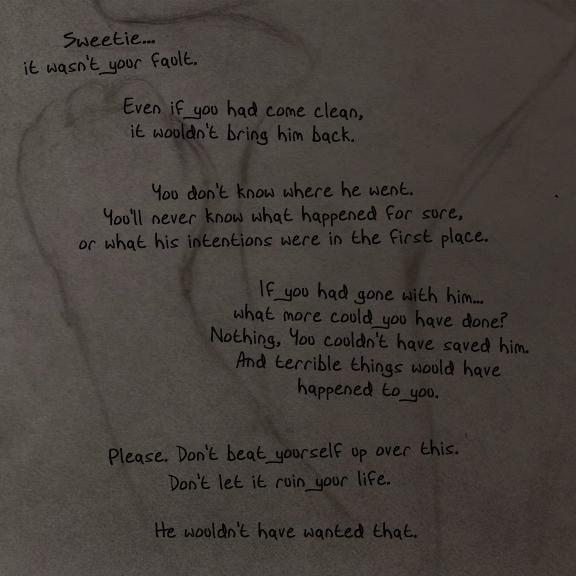 Sweetie...
it wasn't your fault.
Even if you had come clean,
it wouldn't bring him back.
You don't know where he went.
You'll never know what happened for sure,
or what his intentions were in the first place.
If you had gone with him...
what more could you have done?
Nothing, You couldn't have saved him.
And terrible things would have
happened to you.
Please. Don't beat yourself up over this.
Don't let it ruin your life.
He wouldn't have wanted that.